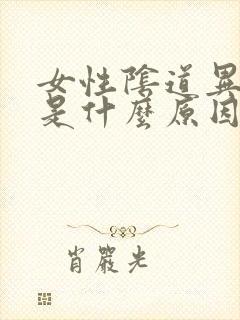 女性陰道異
是什麼原因
肖嚴光